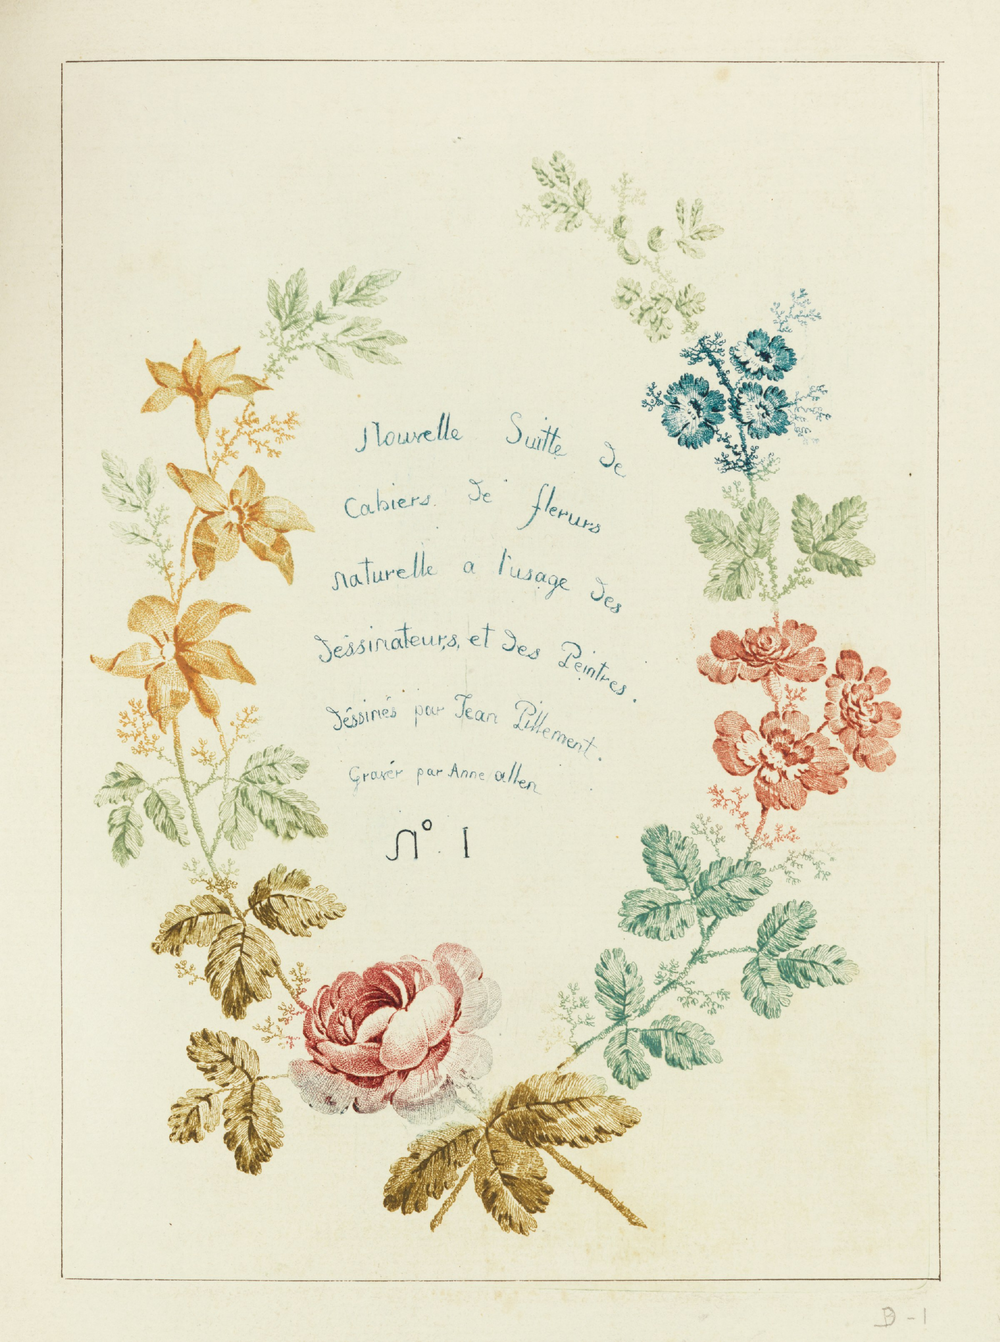 Nouvelle Suitte de
Cahiers de flerurs
naturelle a l'usage des
Déssinateurs, et des Peintres.
Déssinés par Jean Pillement.
Gravér par Anne allen
N° 1
D-1